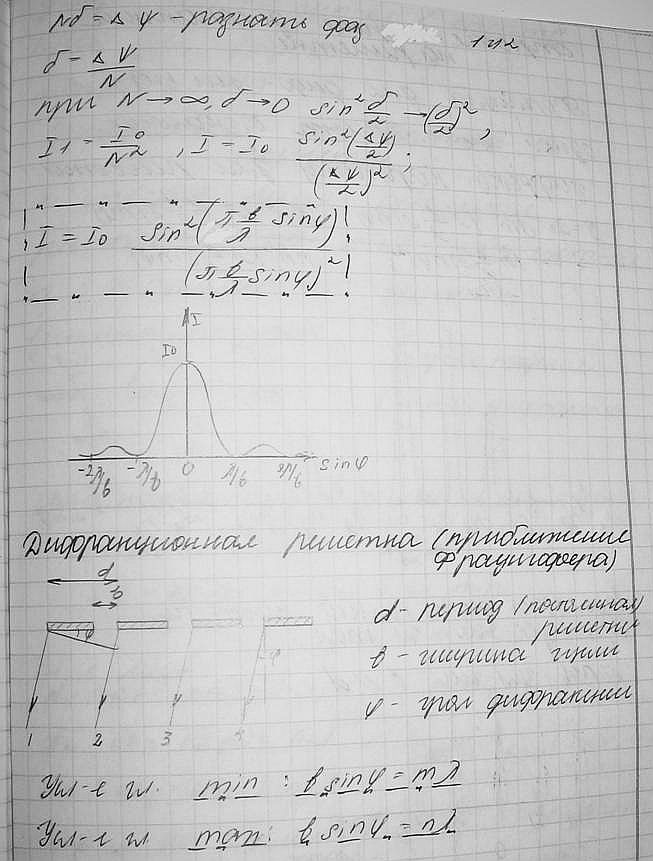 Nδ = Δψ - разность фаз 1 и 2
δ = Δψ/N
при N → ∞, δ → 0 sin² δ/2 → (δ/2)²,
I1 = I0/N², I = I0 sin²(Δψ/2)/(Δψ/2)²;
I = I0 sin²(π b/λ sinφ)/(π b/λ sinφ)²
I
I0
-2λ/b -λ/b 0 λ/b 2λ/b sinφ
Дифракционная решетка (приближение
Фраунгофера)
d
b
d - период (постоянная)
решетки
b - ширина щели
φ φ
φ - угол дифракции
1 2 3 4
Усл-е гл. min: b sinφ = mλ
Усл-е гл max: b sinφ = nλ